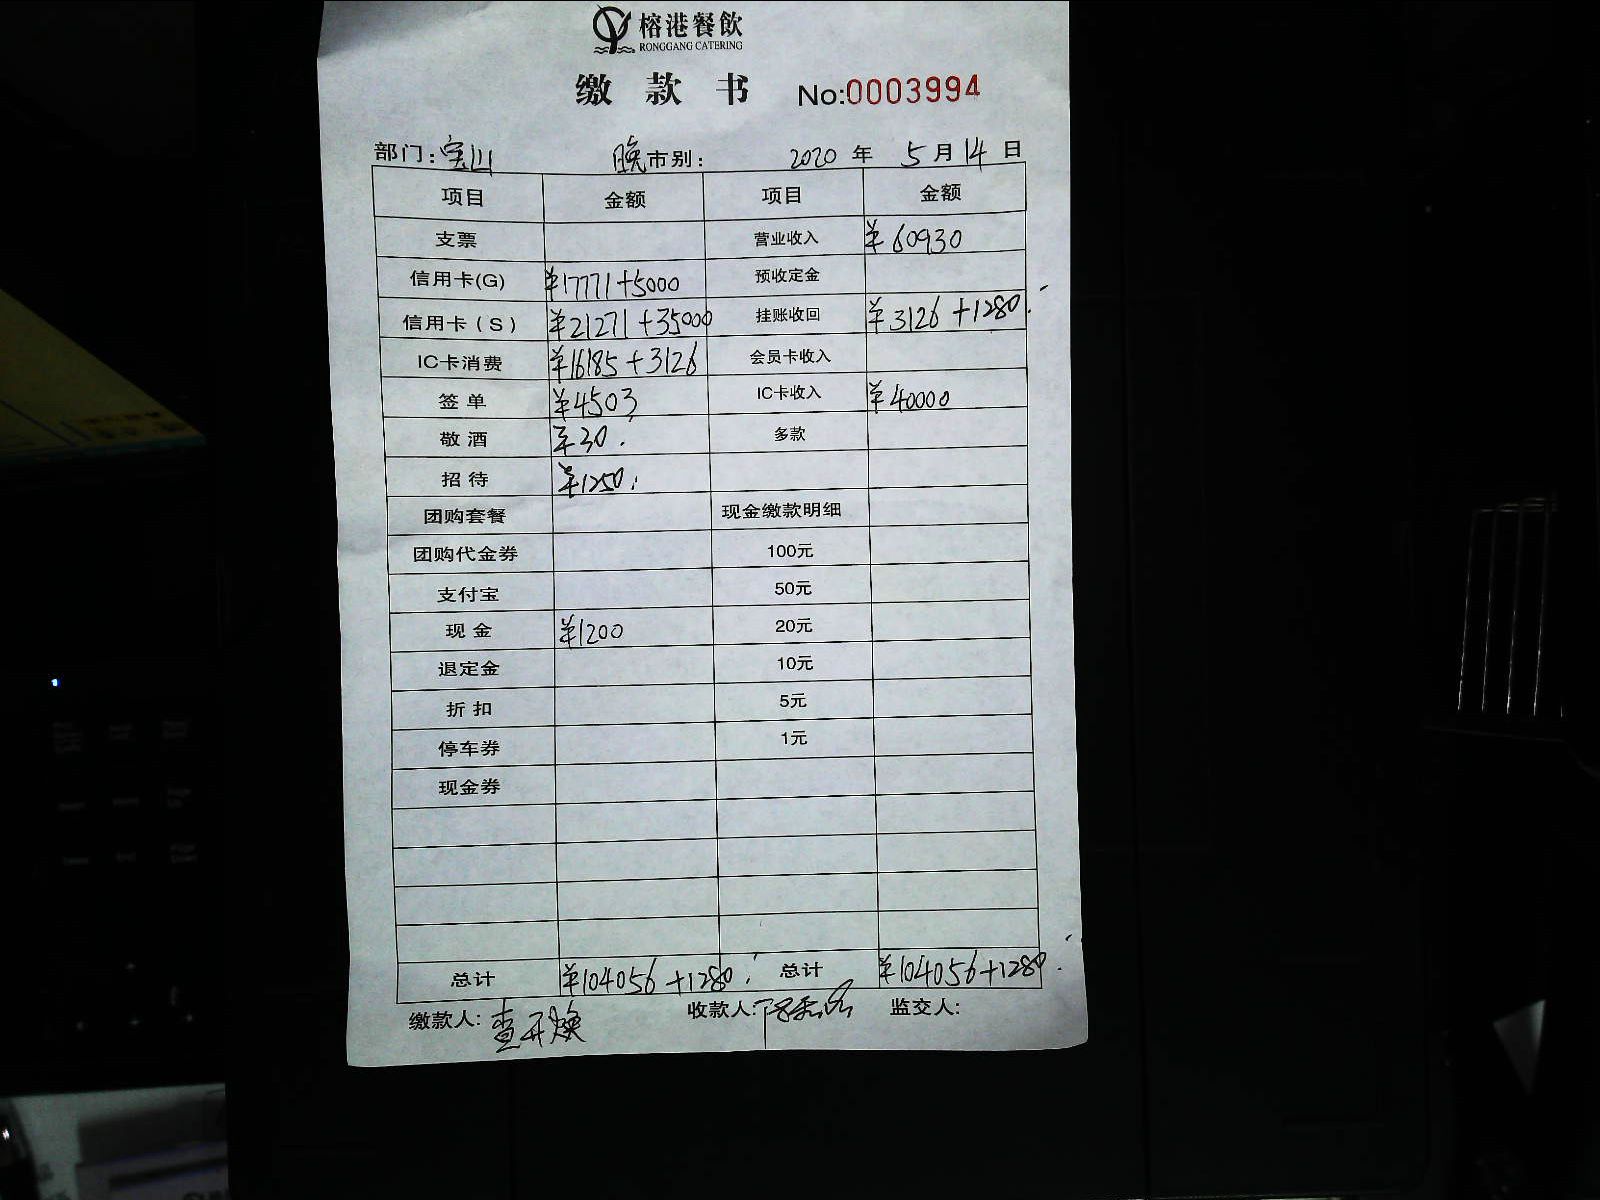 榕港餐飲
RONGGANG CATERING
缴款书 No:0003994
部门：宝山 晚市别： 2020 年 5 月 14 日
项目 金额 项目 金额
支票 营业收入 ¥60930
信用卡(G) ¥17771+5000 预收定金
信用卡（S） ¥21271+35000 挂账收回 ¥3126+1280.
IC卡消费 ¥16185+3126 会员卡收入
签单 ¥4503 IC卡收入 ¥40000
敬酒 ¥30. 多款
招待 ¥1250.
团购套餐 现金缴款明细
团购代金券 100元
支付宝 50元
现金 ¥1200 20元
退定金 10元
折扣 5元
停车券 1元
现金券
总计 ¥104056+1280. 总计 ¥104056+1280.
缴款人: 查开焕 收款人: 监交人: